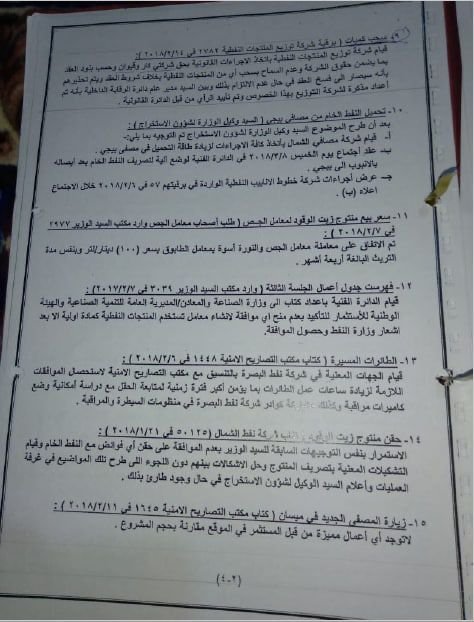 ٩- سحب كميات ( برقية شركة توزيع المنتجات النفطية ٢٧٨٢ في ٢٠١٨/٢/١٤ ) :
قيام شركة توزيع المنتجات النفطية بأتخاذ الإجراءات القانونية بحق شركتي كار وقيوان وحسب بنود العقد
بما يضمن حقوق الشركة وعدم السماح بسحب أي من المنتجات النفطية بخلاف شروط العقد ويتم تحذيرهم
بأنه سيصار الى فسخ العقد في حال عدم الالتزام بذلك وبين السيد مدير عام دائرة الرقابة الداخلية بأنه تم
أعداد مذكرة لشركة التوزيع بهذا الخصوص وتم تأييد الرأي من قبل الدائرة القانونية .
١٠- تحميل النفط الخام من مصافي بيجي ( السيد وكيل الوزارة لشؤون الاستخراج ) :
بعد أن طرح الموضوع السيد وكيل الوزارة لشؤون الاستخراج تم التوجيه بما يلي:-
أ- قيام شركة مصافي الشمال بأتخاذ كافة الاجراءات لزيادة طاقة التحميل في مصفى بيجي .
ب- عقد اجتماع يوم الخميس ٢٠١٨/٣/٨ في الدائرة الفنية لوضع آلية لتصريف النفط الخام بعد ايصاله
بالانبوب الى بيجي .
جـ- عرض أجراءات شركة خطوط الانابيب النفطية الواردة في برقيتهم ٥٧ في ٢٠١٨/٢/٦ خلال الاجتماع
اعلاه (ب) .
١١- سعر بيع منتوج زيت الوقود لمعامل الجص ( طلب أصحاب معامل الجص وارد مكتب السيد الوزير ٢٩٧٧
في ٢٠١٨/٢/٧ ) :
تم الاتفاق على معاملة معامل الجص والنورة أسوة بمعامل الطابوق بسعر (١٠٠) دينار/لتر وبنفس مدة
التريث البالغة أربعة أشهر .
١٢- فهرست جدول أعمال الجلسة الثالثة ( وارد مكتب السيد الوزير ٣٠٣٩ في ٢٠١٧/٢/٧) :
قيام الدائرة الفنية باعداد كتاب الى وزارة الصناعة والمعادن/المديرية العامة للتنمية الصناعية والهيئة
الوطنية للأستثمار للتأكيد بعدم منح أي موافقة لانشاء معامل تستخدم المنتجات النفطية كمادة اولية الا بعد
اشعار وزارة النفط وحصول الموافقة.
١٣- الطائرات المسيرة ( كتاب مكتب التصاريح الامنية ١٤٤٨ في ٢٠١٨/٢/٦ ) :
قيام الجهات المعنية في شركة نفط البصرة بالتنسيق مع مكتب التصاريح الامنية لاستحصال الموافقات
اللازمة لزيادة ساعات عمل الطائرات بما يؤمن أكبر فترة زمنية لمتابعة الحقل مع دراسة أمكانية وضع
كاميرات مراقبة وكذلك كوادر شركة نفط البصرة في منظومات السيطرة والمراقبة .
١٤- حقن منتوج زيت الوقود ( شركة نفط الشمال ٥٠١٢٥ في ٢٠١٨/١/٢١ ) :
الاستمرار بنفس التوجيهات السابقة للسيد الوزير بعدم الموافقة على حقن أي فوائض مع النفط الخام وقيام
التشكيلات المعنية بتصريف المنتوج وحل الاشكالات بينهم دون اللجوء الى طرح تلك المواضيع في غرفة
العمليات وأعلام السيد الوكيل لشؤون الاستخراج في حال وجود طارئ بذلك .
١٥- زيارة المصفى الجديد في ميسان ( كتاب مكتب التصاريح الامنية ١٦٤٥ في ٢٠١٨/٢/١١ ) :
لاتوجد أي أعمال مميزة من قبل المستثمر في الموقع مقارنة بحجم المشروع .
(٢-٤)